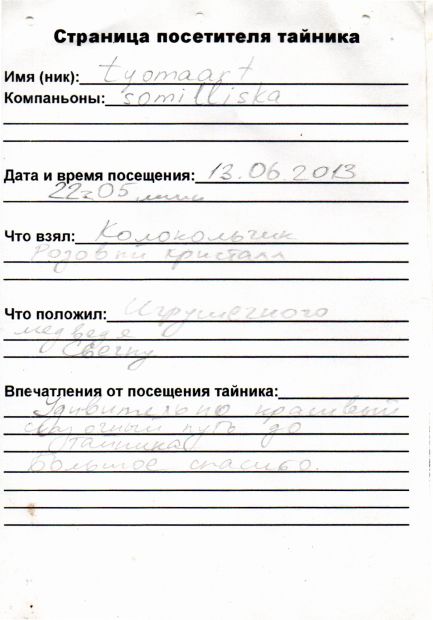 Страница посетителя тайника
Имя (ник): tyomaart
Компаньоны: somilliska
Дата и время посещения: 13.06.2013
22:05 мин
Что взял: Колокольчик
Розовый кристалл
Что положил: Игрушечного
медведя
Свечку
Впечатления от посещения тайника:
Удивительно красивый
сказочный путь до
тайника
Большое спасибо.